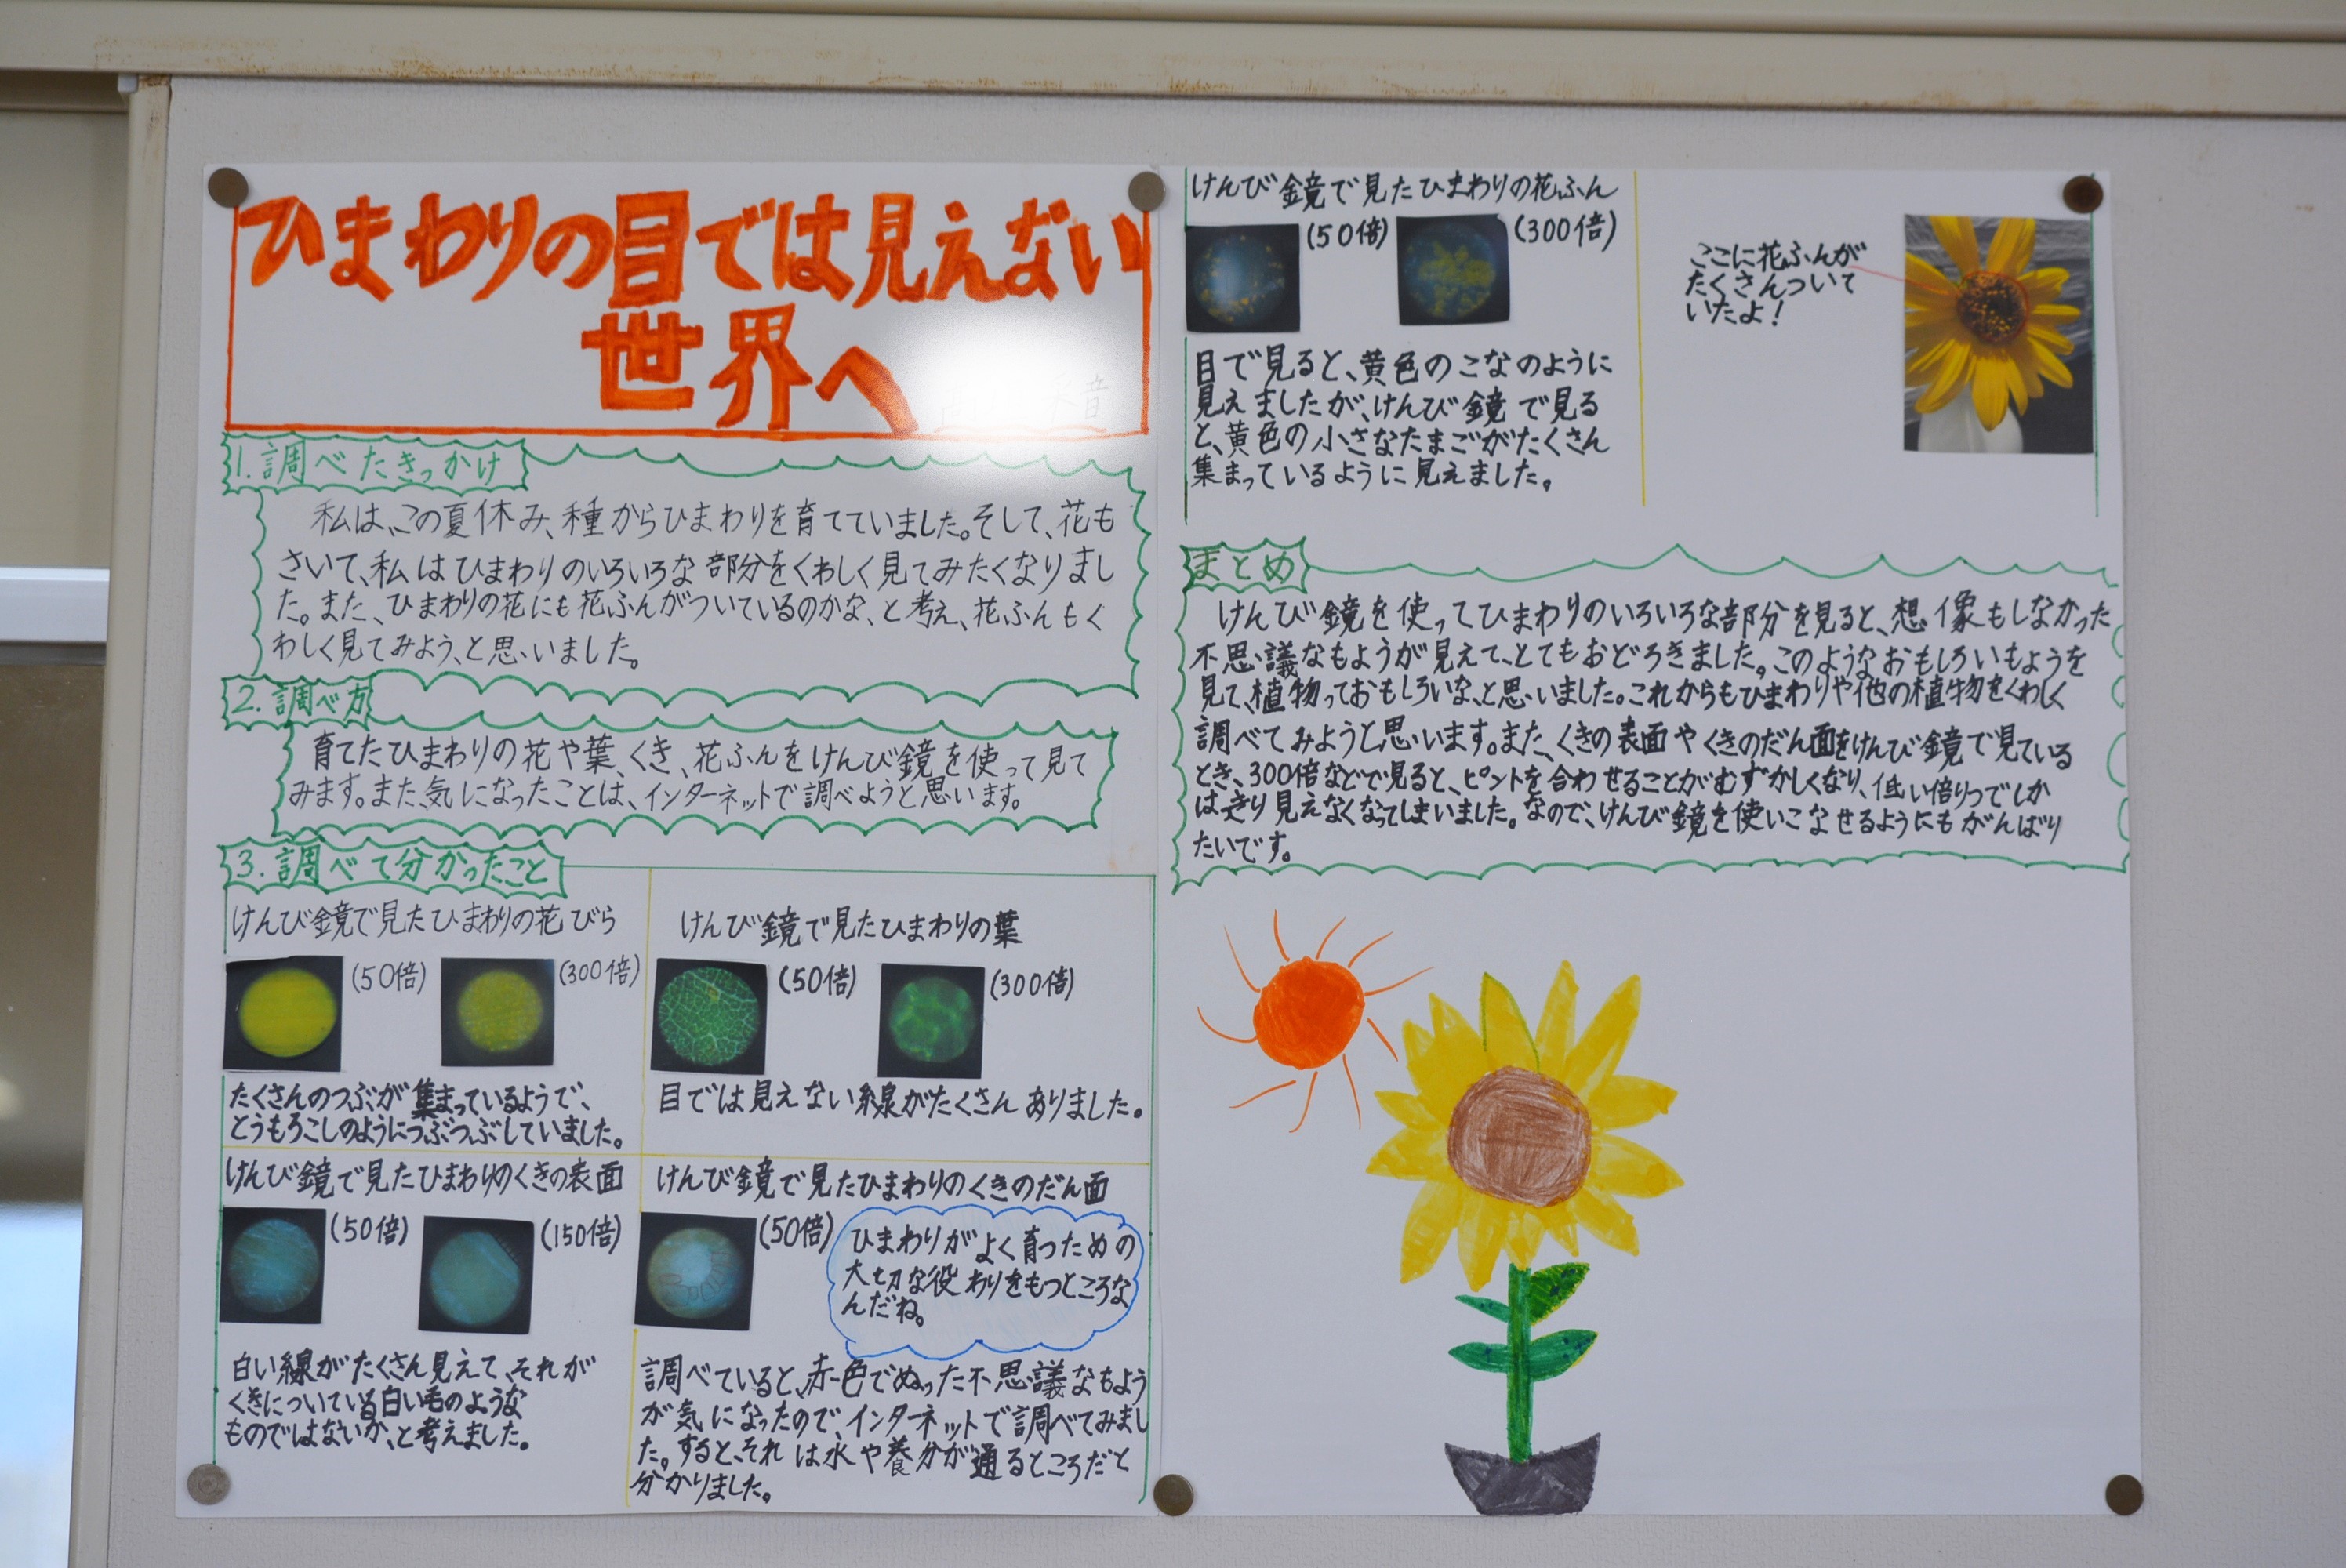 ひまわりの目では見えない
世界へ
1.調べたきっかけ
私は、この夏休み、種からひまわりを育てていました。そして、花も
さいて、私はひまわりのいろいろな部分をくわしく見てみたくなりまし
た。また、ひまわりの花にも花ふんがついているのかな、と考え、花ふんもく
わしく見てみよう、と思いました。
2.調べ方
育てたひまわりの花や葉、くき、花ふんをけんび鏡を使って見て
みます。また、気になったことは、インターネットで調べようと思います。
3.調べて分かったこと
けんび鏡で見たひまわりの花びら
(50倍)
(300倍)
たくさんのつぶが集まっているようで、
とうもろこしのようにつぶつぶしていました。
けんび鏡で見たひまわりの葉
(50倍)
(300倍)
目では見えない線がたくさんありました。
けんび鏡で見たひまわりのくきの表面
(50倍)
(150倍)
白い線がたくさん見えて、それが
くきについている白い毛のような
ものではないか、と考えました。
けんび鏡で見たひまわりのくきのだん面
(50倍)
ひまわりがよく育つための
大切な役わりをもつところな
んだね。
調べていると、赤色でぬった不思議なもよう
が気になったので、インターネットで調べてみまし
た。すると、それは水や養分が通るところだと
分かりました。
けんび鏡で見たひまわりの花ふん
(50倍)
(300倍)
目で見ると、黄色のこなのように
見えましたが、けんび鏡で見る
と、黄色の小さなたまごがたくさん
集まっているように見えました。
ここに花ふんが
たくさんついて
いたよ!
まとめ
けんび鏡を使ってひまわりのいろいろな部分を見ると、想像もしなかった
不思議なもようが見えて、とてもおどろきました。このようなおもしろいもようを
見て、植物っておもしろいな、と思いました。これからもひまわりや他の植物をくわしく
調べてみようと思います。また、くきの表面やくきのだん面をけんび鏡で見ている
とき、300倍などで見ると、ピントを合わせることがむずかしくなり、低い倍りつでしか
はっきり見えなくなってしまいました。なので、けんび鏡を使いこなせるようにもがんばり
たいです。